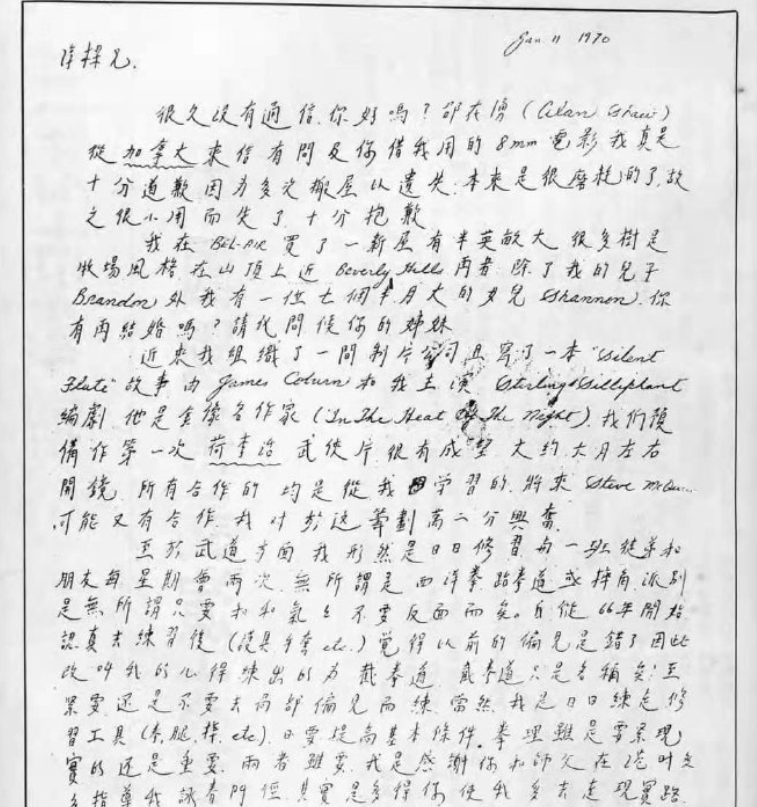 Jan 11 1970
淳樑兄.
很久没有通信.你好嗎?邵在傳(Alan Shaw)
從加拿大來信有問及你借我用的8mm電影我真是
十分道歉因为多次搬屋以遺失.本來是很磨耗的了,故
之很小用而失了.十分抱歉
我在BEL-AIR買了一新屋有半英畝大很多樹是
牧場風格.在山頂上近Beverly Hills再者除了我的兒子
Brandon外我有一位七個半月大的女兒Shannon.你
有再結婚嗎?請代問侯你的姊妹
近來我組織了一間制片公司且寫了一本"Silent
Flute"故事由James Coburn和我主演Stirling Silliphant
編劇.他是金像名作家(In The Heat Of The Night).我們預
備作第一次荷李活武俠片很有成望.大約六月左右
開鏡.所有合作的均是從我学習的.將來Steve McQueen
可能又有合作.我对於这籌劃萬二分興奮
至於武道方面我形然是日日修習.与一班徒弟和
朋友每星期會兩次.無所謂是西洋拳,跆拳道或摔角.派別
是無所謂只要和和氣气不要反面而矣。自從66年開始
認真去練習後(設具手套etc.)覺得以前的偏見是錯了因此
改叫我的心得練出的为截拳道.截拳道只是名稱矣!至
緊要还是不要去局部偏見而練.當然.我是日日練走修
習工具(拳,腿,捽,etc).日要提高基本條件.拳理雖是要緊現
實的还是重要.兩者雖要.我是感謝你和師父在港时多
多指導我詠春門徑.其實是多得你使我多去走現實路